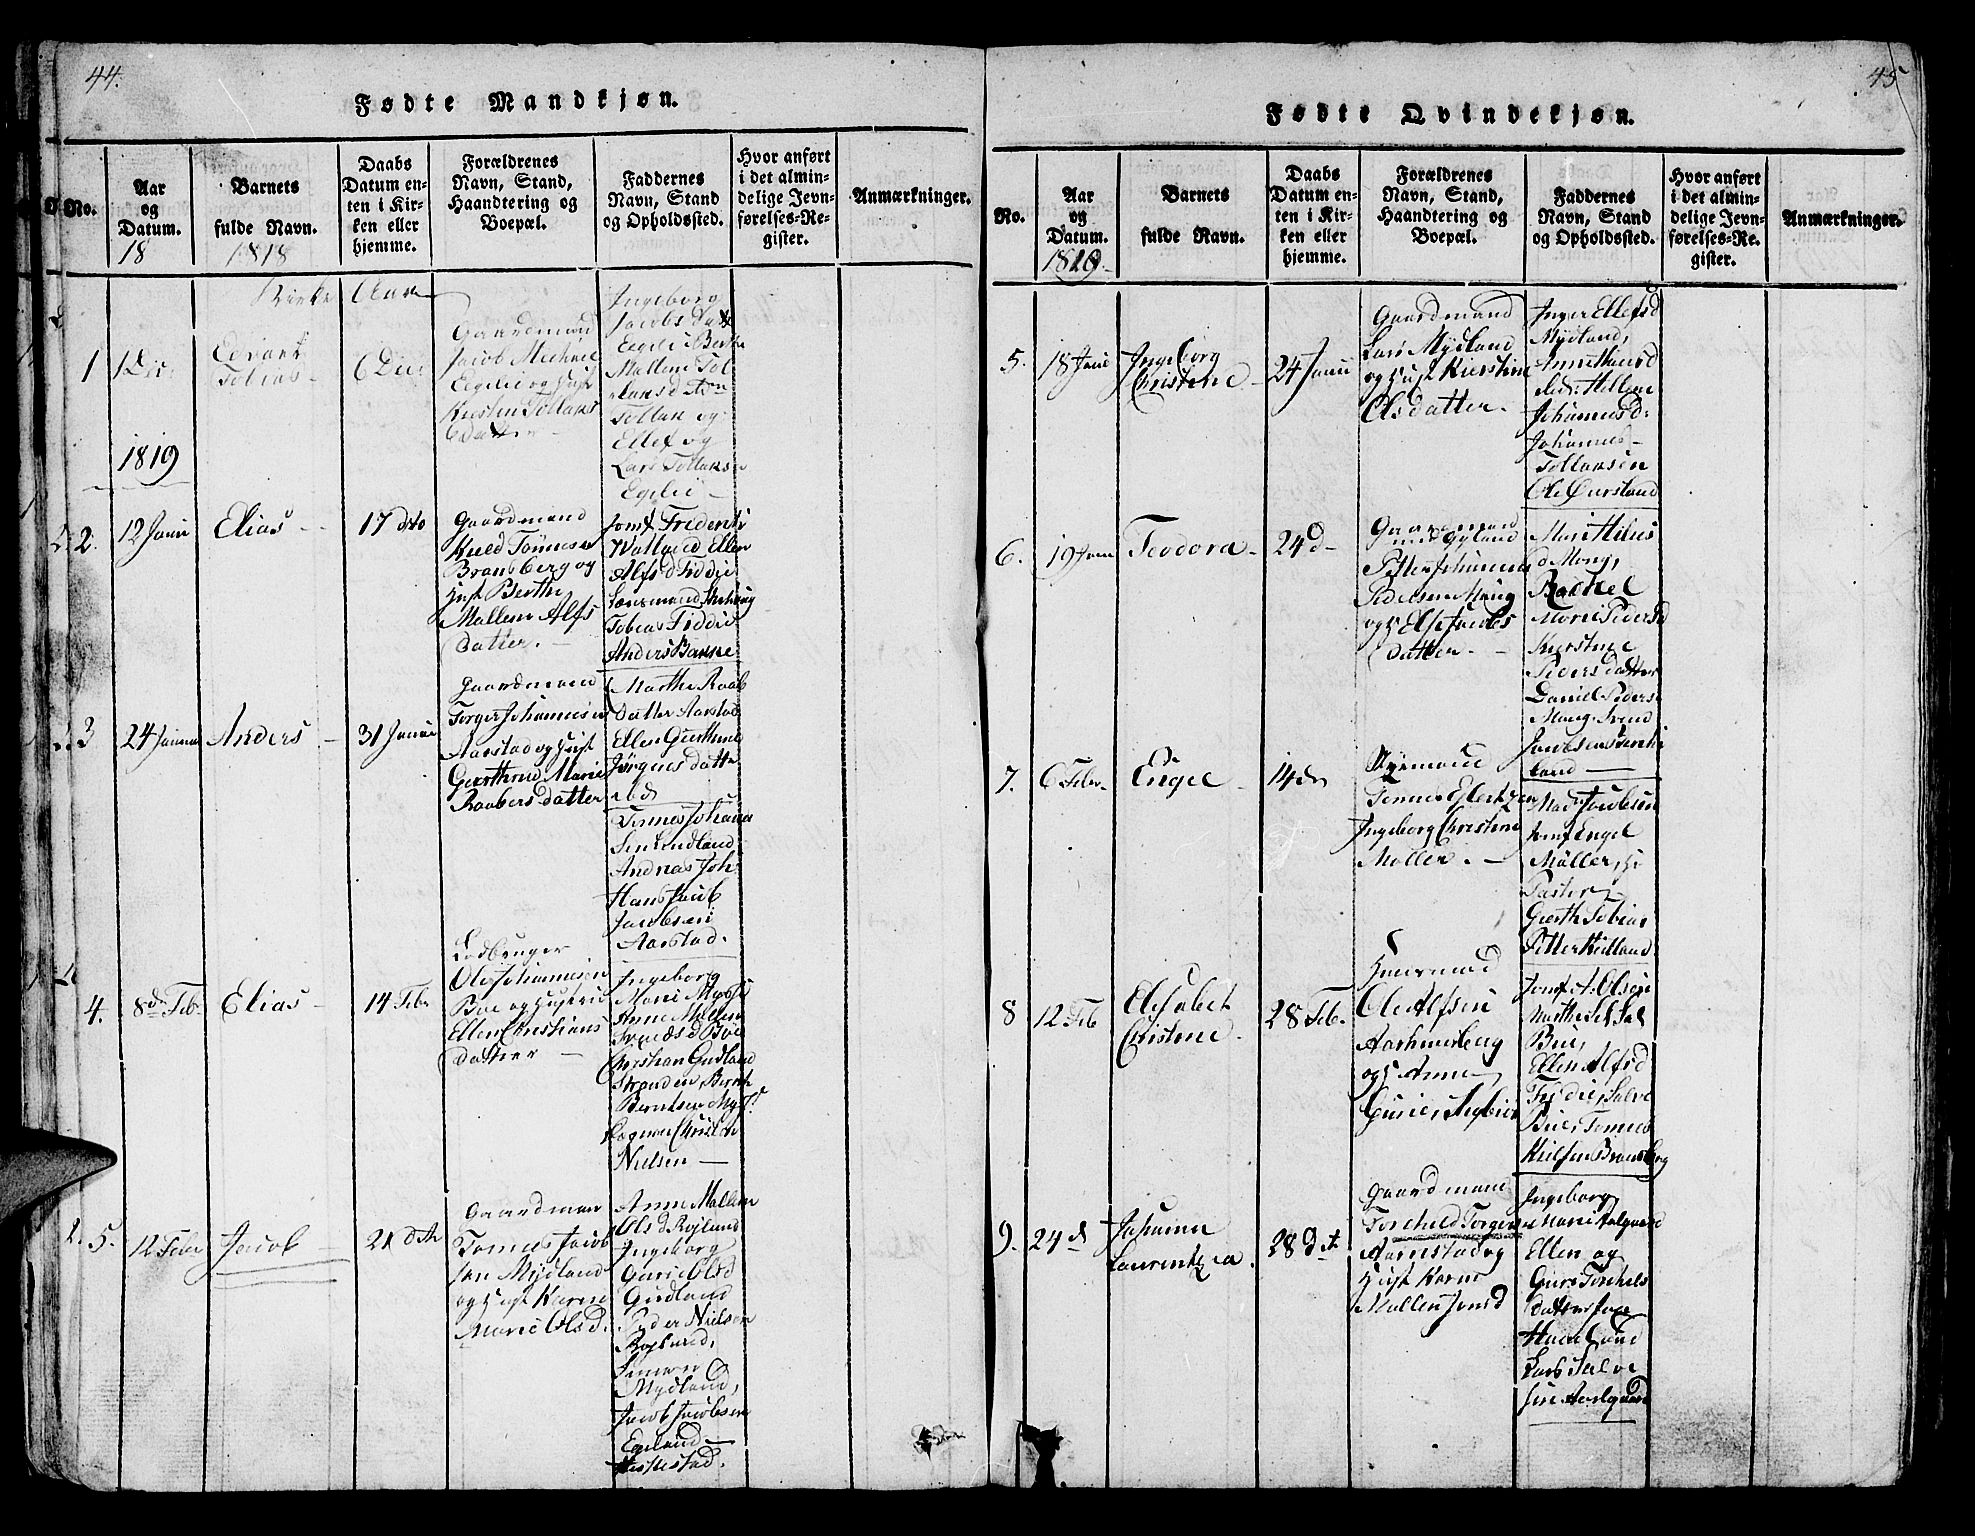 44.
Fødte Mandkjøn.
No.
Aar
og
Datum.
18
Barnets
fulde Navn.
1818
Daabs
Datum en-
ten i Kir-
ken eller
hjemme.
Forældrenes
Navn, Stand,
Haandtering og
Boepæl.
Faddernes
Navn, Stand
og Opholdssted.
Hvor anført
i det almin-
delige Jevn-
førelses-Re-
gister.
Anmærkninger.
Kirke Aar
1
1 Dec:
Edvart
Tobias
6 Dec:
Gaardmand
Jacob Michael
Egelie og Hust
Kirsten Tollaks
Datter
Ingeborg
Jacobs
Egelie Berthe
Mallene Tol
Tollak og
Ellef og
Lars Tollaksen
Egelie
1819
2.
12 Janu
Elias
17 dto
Gaardmand
Kield Tønnesen
Bransberg og
Hust Berthe
Mallene Alfs
Datter.
Jomf Frederik
Watland Ellen
Alfs d Fiddie
Lænsmand
Tobias Fiddie
Anders Bakke
3
24
Anders
31 Janua
Gaardmand
Torger Johannesen
Aarstad og Hust
Geerthrue Marie
Raabers datter
Marthe Raab
Datter Aarstad
Ellen Geerthrue
Jørgens datter
ibd
Tønnes Johanne
sen Lindland
Andreas Joh
Hans Jacob
Jacobsen
Aarstad.
4.
8de Feb.
Elias
14 Febr
Ole Johannesen
Boe og Hustrue
Ellen Christians
datter
Ingeborg
Marie Mysse
Anne Mallene
Svends d Boe
Christian Gudland
Stranden Bernt
Berntsen Mysse
Christen
Nielsen
5.
12 Febr
Jacob
21 dto
Gaardman
Tønnes Jacob
sen Mydland
og Hust Karen
Marie Ols d.
Anne Mallene
Ols d Røjland
Ingeborg
Gurie Ols d
Gudland
Peder Nielsen
Røjland,
Simon
Mydland,
Jacob Jacobsen
Egeland
Heskestad.
45
Fødte Qvindekjøn.
No.
Aar
og
Datum.
1819.
Barnets
fulde Navn.
Daabs
Datum en-
ten i Kir-
ken eller
hjemme.
Forældrenes
Navn, Stand,
Haandtering og
Boepæl.
Faddernes
Navn, Stand
og Opholdssted.
Hvor anført
i det almin-
delige Jevn-
førelses-Re-
gister.
Anmærkninger.
5.
18 Janu
Ingeborg
Christine
24 Janu
Gaardmand
Lars Mydland
og Hust Kierstine
Olsdatter.
Inger Ellefs d
Mydland,
Anne
Hellene
Johannes d:
Johannes
Tollaksen
Ole Ourstand
6.
19 Janu
Teodora
24 d
Gaardmand
Petter Johannes
Pedersen Mong
og H Else Jacobs
datter
Mari
Mong,
Rachel
Marie Peders d
Kierstine
Peders datter
Daniel Peders
Mong Svend
Jacobsen
land
7.
6 Febr
Engel
14 de
Tønnes Ejlertzen
Ingeborg Christine
Møller.
Mad Jacobsen
Jomf Engel
Møller, H
Pastor
Geert Tobias
Petter Hetland
8
12 Feb
Elisabet
Christine
28 Feb.
Huusmand
Ole Alfsen
og H Anne
Jomf A: Olsen
Marthe
Bue,
Ellen Alfs d
Fidie, Salve
Bue, Tønnes
Kielsen Bransberg
9.
24 d
Johanne
Laurentzea.
28 dt
Gaardmand
Torchild Torgersen
Aarrestad og
Hust Karen
Mallene Jens d
Ingeborg
Marie Aalgaard
Ellen og
Guri Torchels
datter
Haaland
Lars Salve
sen Aalgaard